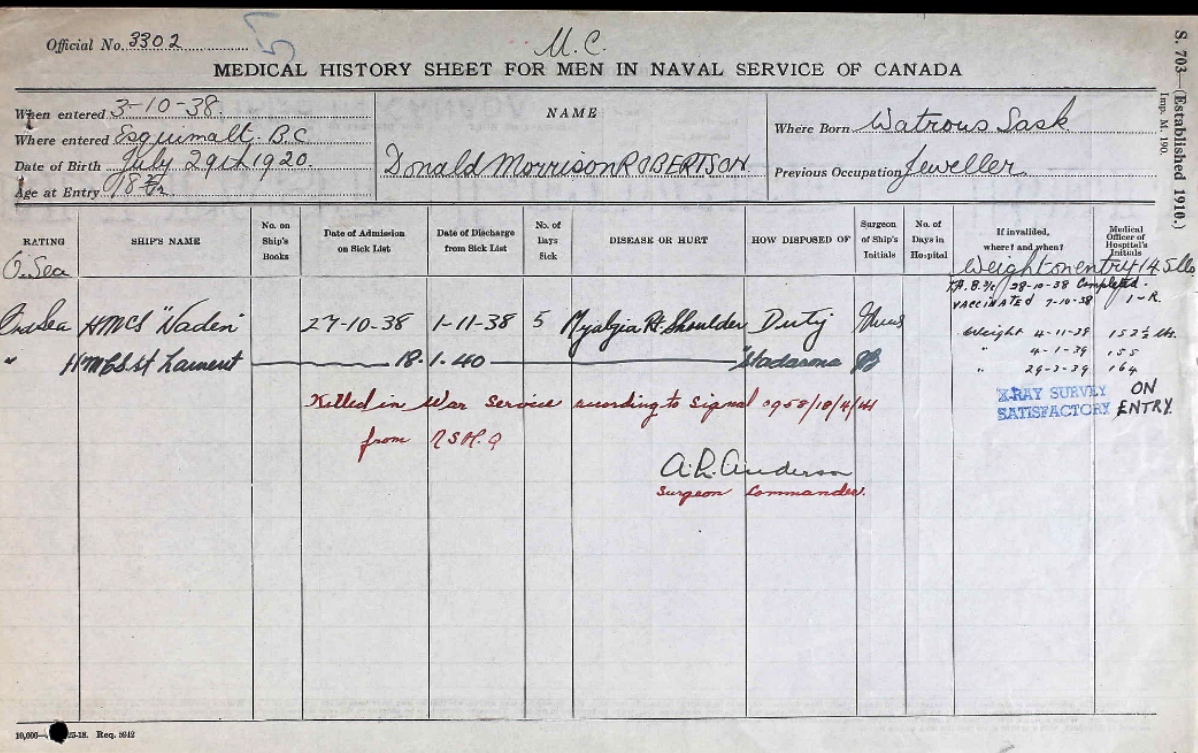 Official No. 3302
M.C.
MEDICAL HISTORY SHEET FOR MEN IN NAVAL SERVICE OF CANADA
S. 703—(Established 1910.)
Imp. M. 190.
When entered 3-10-38.
Where entered Esquimalt. B.C.
Date of Birth July 29th 1920.
Age at Entry 18
NAME
Donald Morrison ROBERTSON.
Where Born Watrous Sask
Previous Occupation Jeweller
RATING
SHIP'S NAME
No. on Ship's Books
Date of Admission on Sick List
Date of Discharge from Sick List
No. of Days Sick
DISEASE OR HURT
HOW DISPOSED OF
Surgeon of Ship's Initials
No. of Days in Hospital
If invalided, where? and when?
Medical Officer of Hospital's Initials
O. Sea
Weight on entry 145 lbs
T.A.B. 28-10-38 Completed.
VACCINATED 7-10-38 1-R.
Ord Sea HMCS "Naden" 27-10-38 1-11-38 5 Myalgia Rt. Shoulder Duty
Weight 4-11-38 152½ lbs.
" HMCS St Laurent 18-1-40 "Stadacona
" 4-1-39 155
" 29-3-39 164
X-RAY SURVEY SATISFACTORY ON ENTRY
Killed in War Service according to Signal 0958/18/4/41
from N.S.H.Q
A.L. Anderson
Surgeon Commander.
10,000— 25-18. Req.